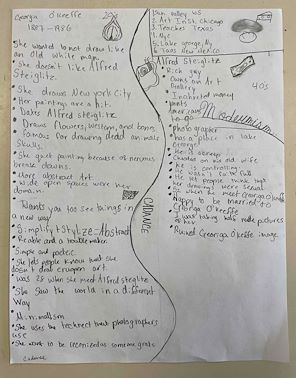 Georgia O'Keeffe
1887-1986
She wanted to not draw like
an old white man.
She doesn't like Alfred
Steiglitz.
She draws New York City
Her paintings are a hit.
Dates Alfred steiglitz
Draws flowers, western, and bones.
Famous for drawing dead animals
Skulls.
She quit painting because of nervous
break downs.
More abstract Art
wide open spaces were her
domain.
Wants you too see things in
a new way
Simplify + Stylize - Abstract
Reable and a trouble maker.
Simple and poetic.
She lets people know that she
doesn't draw art.
Was 28 when she meet Alfred steiglitz
She saw the world in a different
Way
Minimalism
She uses the technect that photographers
use
She want to be reconized as someone great
Cadance
CADANCE
Sun valley WS
2. Art Inst. Chicago
3. Teaches Texas
4. NYC
5. Lake george, NY
6. Taos New Mexico
Alfred Steiglitz
Rich guy
Owns an Art
Gallery
Inherited money
Wants
American
to go
Modernism
40s
photographer
has a place in lake
George
He is
Cheated on his old wife
He is controlling
He wasn't faithful
He let people think that
her drawings were sexual
when he meet George O'keffe
Happy to be married to
George O'keffe
was taking nude pictures
of her
Ruined Georgia O'keffe image